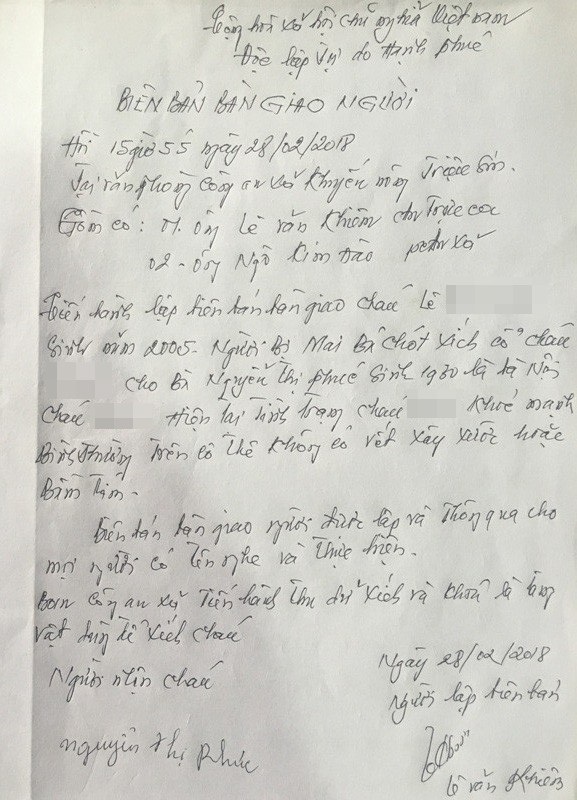 Cộng hoà xã hội chủ nghĩa Việt Nam
Độc lập Tự do Hạnh phúc
BIÊN BẢN BÀN GIAO NGƯỜI
Hồi 15 giờ 55 ngày 28/02/2018
Tại văn phòng Công an xã Khuyến nông Triệu Sơn.
Gồm có: 01. Ông Lê văn Khiêm
02 - Ông Ngô Kim Đào
Tiến hành lập biên bản bàn giao cháu Lê
Sinh năm 2005. Người Bị Mai Bá Chót Xích cổ cháu
cho Bà Nguyễn Thị Phúc Sinh 1930 là bà Nội
cháu Hiện tại Tình trạng cháu khoẻ mạnh
Bình thường Trên cơ thể không có vết xây xước hoặc
Bầm Tím.
Biên bản bàn giao người được lập và Thông qua cho
mọi người có Tên nghe và Thực hiện.
Ban công an xã Tiến hành Thu dữ xích và khoá là tang
vật dùng để xích cháu
Ngày 28/02/2018
Người nhận cháu
Người lập biên bản
Nguyễn Thị Phúc
Lê văn Khiêm